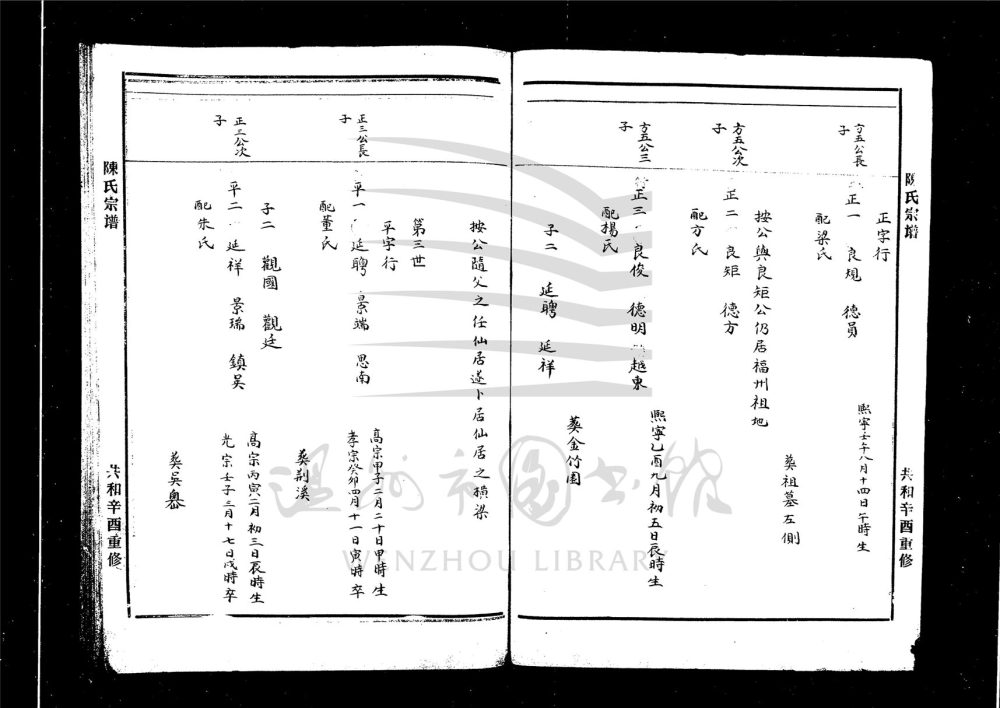 陳氏宗譜
共和辛酉重修
正字行
方五公長
子
正一 良規 德員
熙寧壬午八月十四日午時生
配梁氏
按公與良矩公仍居福州祖地
葬祖墓左側
方五公次
子
正二 良矩 德方
配方氏
方五公三
子
正三 良俊 德明 越東
熙寧乙酉九月初五日辰時生
配楊氏
葬金竹園
子二 延聘 延祥
按公隨父之任仙居遂卜居仙居之橫梁
第三世
平字行
正三公長
子
平一 延聘 景端 思南
高宗甲子二月二十日甲時生
孝宗癸卯四月十一日寅時卒
配董氏
葬荆溪
子二 觀國 觀廷
正三公次
子
平二 延祥 景瑞 鎮吴
高宗丙寅二月初三日辰時生
光宗壬子三月十七日戌時卒
配朱氏
葬吴
陳氏宗譜
共和辛酉重修
温州市图书馆
WENZHOU LIBRARY